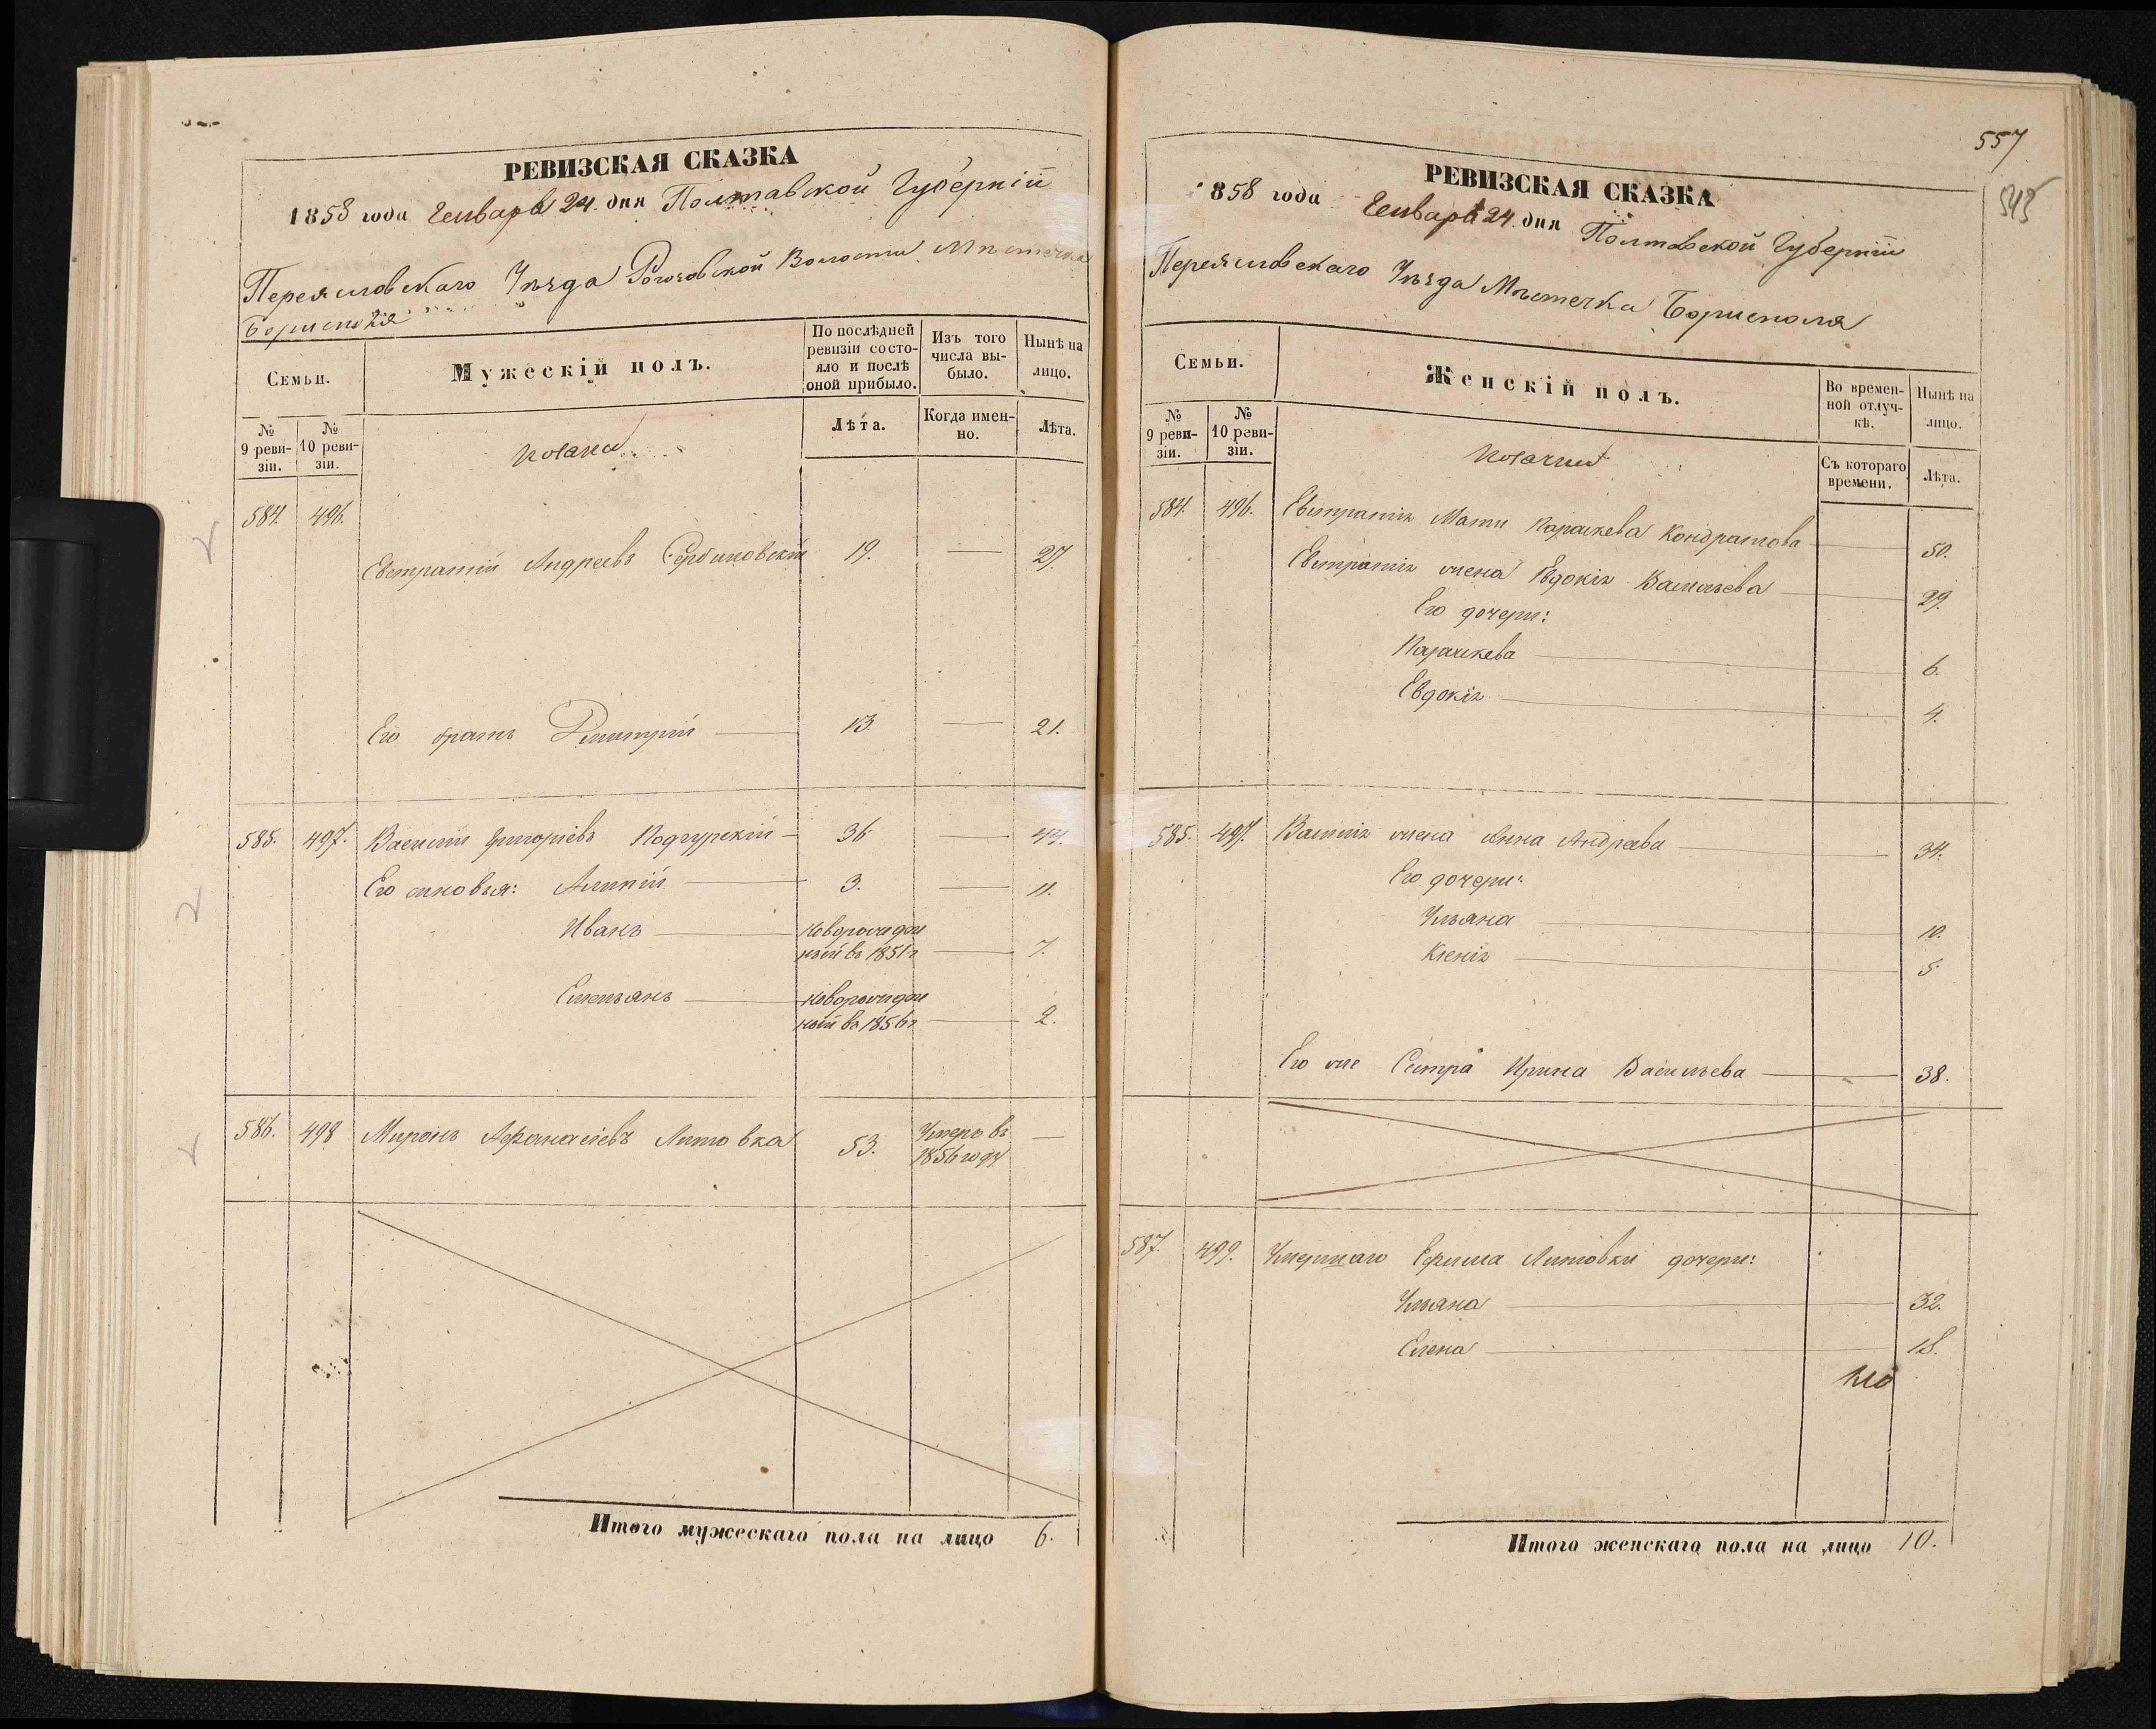 РЕВИЗСКАЯ СКАЗКА
1858 года Генваря 24. дня Полтавской Губерніи
Переяславскаго Уѣзда Рогозовской Волости Мѣстечка
Борисполя
Семьи.
Мужескій полъ.
По послѣдней ревизіи состояло и послѣ оной прибыло.
Изъ того числа выбыло.
Нынѣ на лицо.
№ 9 ревизіи.
№ 10 ревизіи.
козаки
Лѣта.
Когда именно.
Лѣта.
584. 496.
Евстратій Андреевъ 19. — 27.
Его братъ Димитрій — 13. — 21.
585. 497. Василій Григоріевъ Подгурскій — 36 — 44.
Его сыновья: Алипій — 3. — 11.
Иванъ — новорожден
ный въ 1851 г — 7.
Емельянъ — новорожден
ный въ 1856 г — 2.
586. 498 Миронъ Афанасіевъ Литовка 53. Умеръ въ —
1856 году
Итого мужескаго пола на лицо 6.
557
545
РЕВИЗСКАЯ СКАЗКА
1858 года Генваря 24. дня Полтавской Губерніи
Переяславскаго Уѣзда Мѣстечка Борисполя
Семьи.
Женскій полъ.
Во временной отлучкѣ.
Нынѣ на лицо.
№ 9 ревизіи.
№ 10 ревизіи.
козачки
Съ котораго времени.
Лѣта.
584. 496. Евстратія Мати Параскева Кондратова — 50.
Евстратія жена Евдокія Васильева — 29.
Его дочери:
Параскева — 6.
Евдокія — 4.
585. 497. Василія жена Анна Андреева — 34.
Его дочери:
Ульяна — 10.
Ксенія — 5.
Его же Сестра Ирина Васильева — 38.
587. 499. Умершаго Ефима Литовки дочери:
Ульяна — 32.
Елена — 18.
Итого женскаго пола на лицо 10.